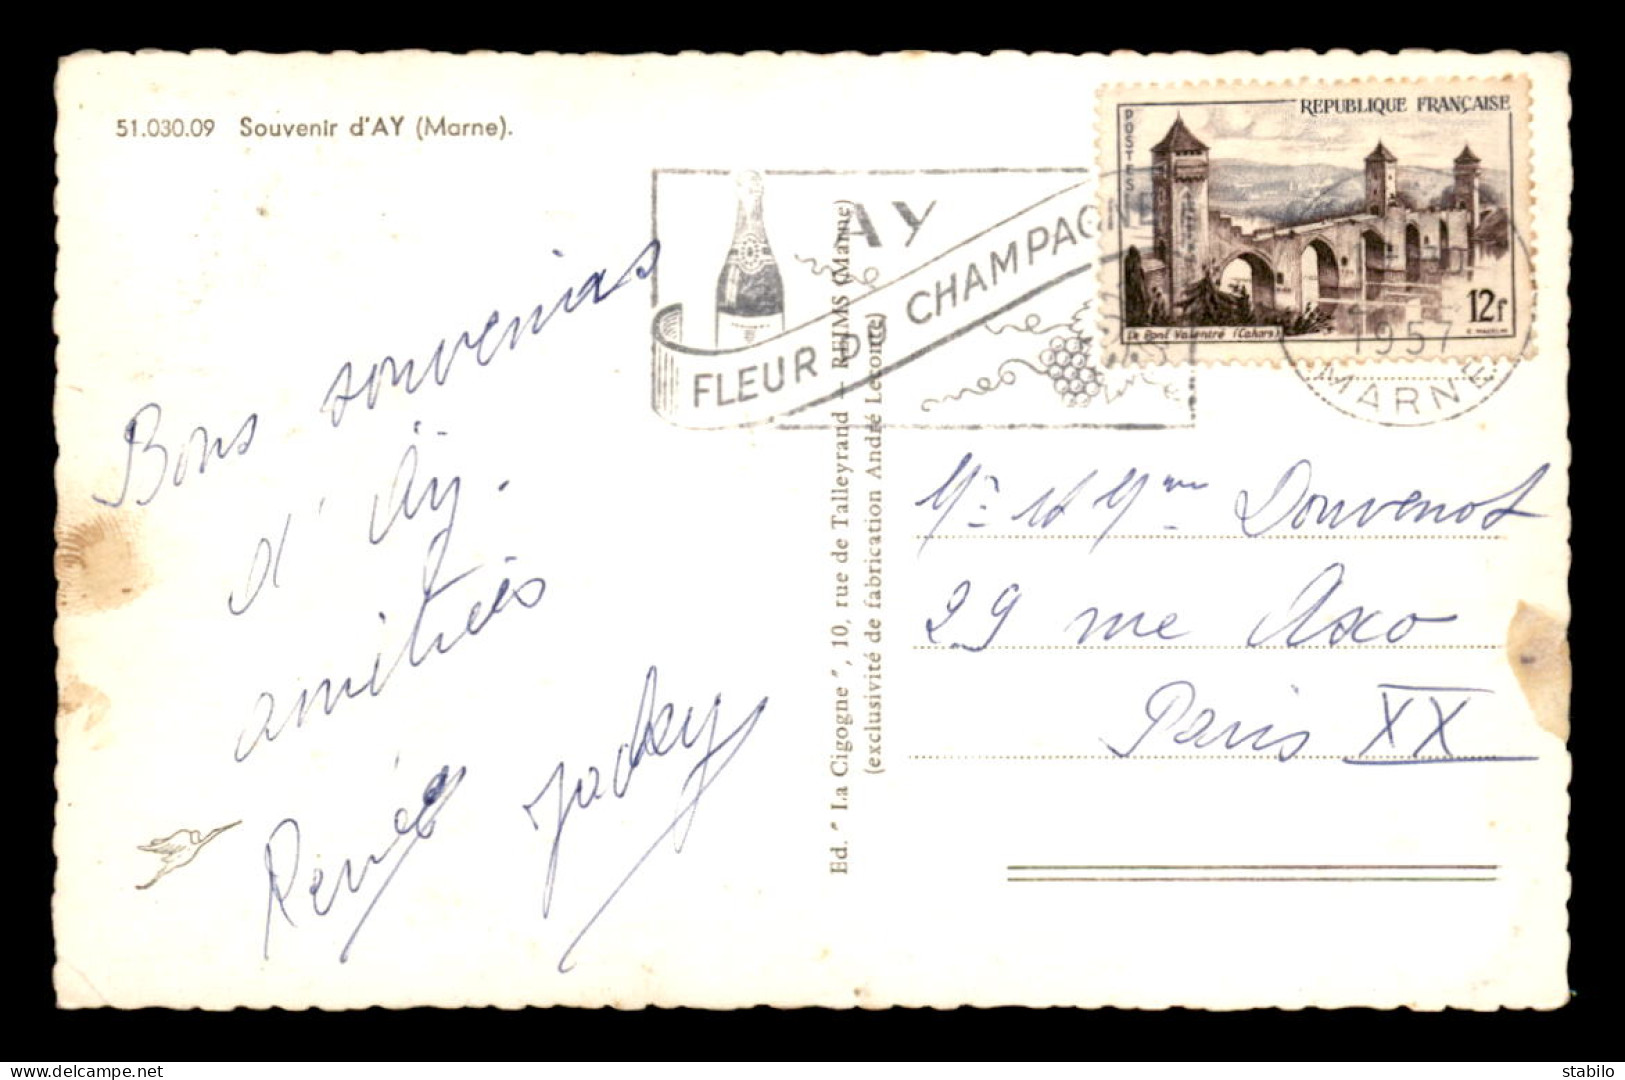 51.030.09 Souvenir d'AY (Marne).
Bons souvenirs
d'Aÿ.
amitiés
Renée Jacky
Ed. "La Cigogne", 10, rue de Talleyrand - REIMS (Marne)
(exclusivité de fabrication André Leconte)
AY
FLEUR DU CHAMPAGNE
REPUBLIQUE FRANÇAISE
POSTES
Le Pont Valentré (Cahors)
12f
1957
MARNE
Mr et Mme Douvenot
29 rue Axo
Paris XX
delcampe.net
stabilo